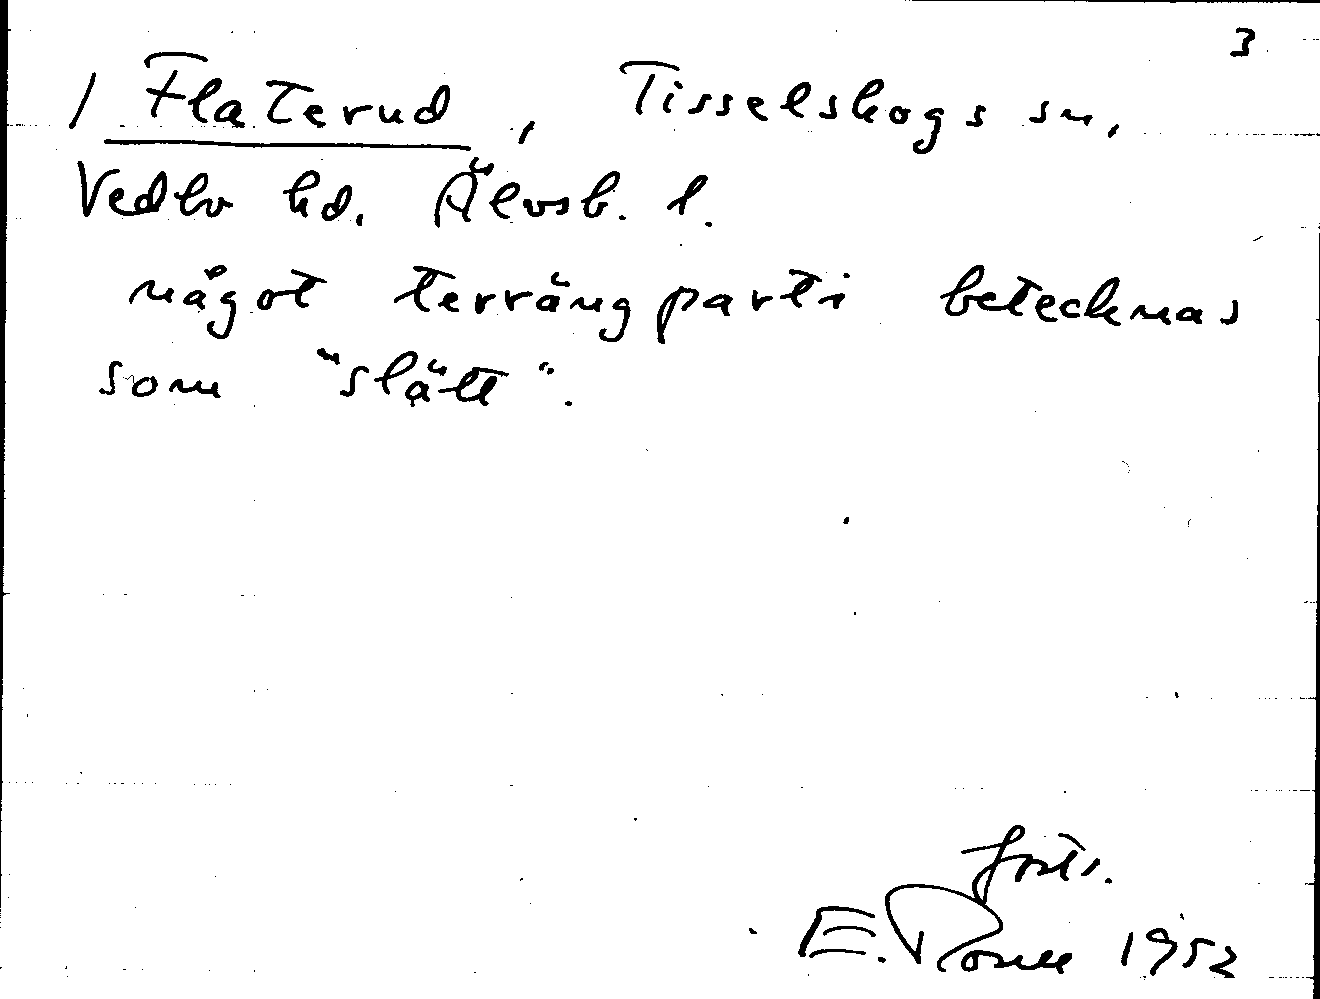 3
/ Flaterud, Tisselskogs sn,
Vedbo hd. Älvsb. l.
något terrängparti betecknas
som "slätt".
forts.
E. Rosell 1952